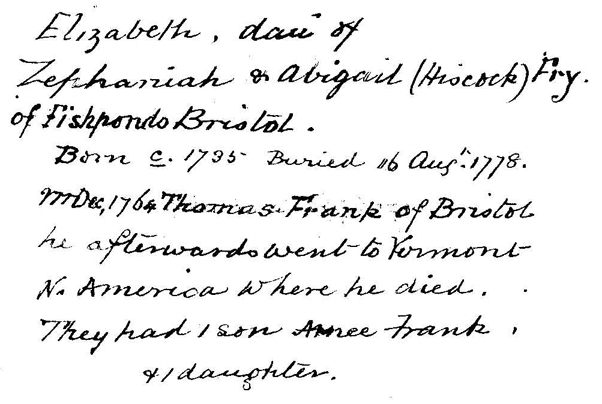 Elizabeth, dau of
Zephaniah & Abigail (Hiscock) Fry.
of Fishponds Bristol.
Born c. 1735 Buried 16 Augt. 1778.
m Dec, 1764 Thomas Frank of Bristol
he afterwards went to Vermont
N. America where he died.
They had 1 son Frank,
& 1 daughter.